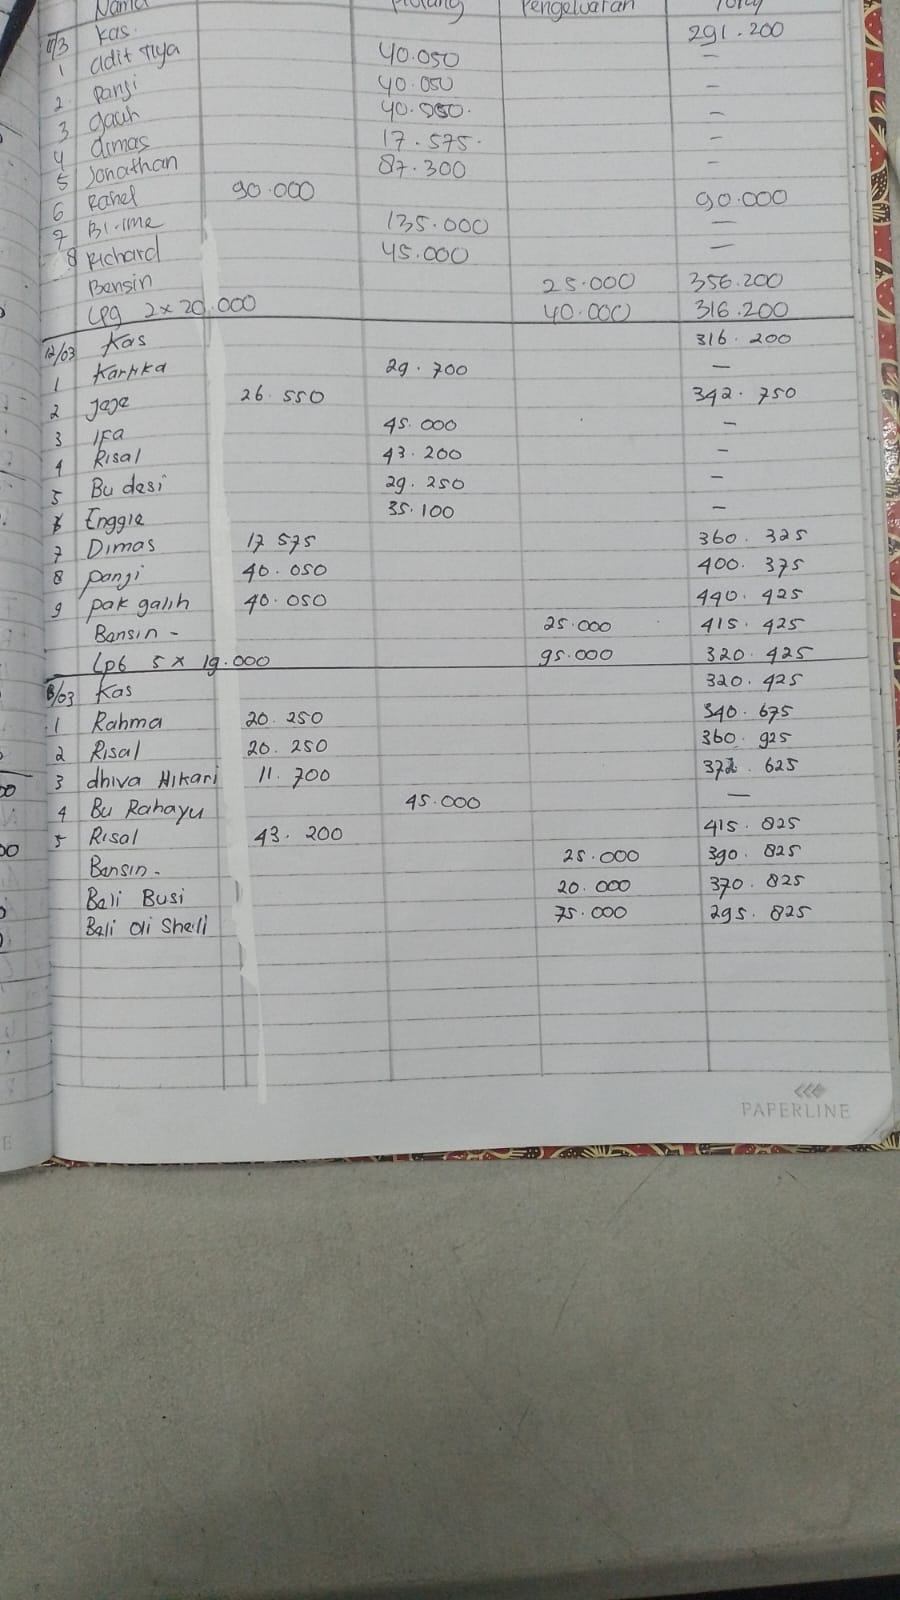 Nama Piutang Pengeluaran Total
11/3 Kas. 291.200
1 adit Tiya 40.050 —
2. panji 40.050 —
3 galih 40.050. —
4 dimas 17.575. —
5 Jonathan 87.300 —
6 Rahel 90.000 90.000
7 135.000 —
8 Richard 45.000 —
Bensin 25.000 356.200
Lpg 2x20.000 40.000 316.200
12/03 Kas 316.200
1 Kartika 29.700 —
2 Jeje 26.550 342.750
3 Ifa 45.000 —
4 Risal 43.200 —
5 Bu desi 29.250 —
6 Enggie 35.100 —
7 Dimas 17 575 360.325
8 panji 40.050 400.375
9 pak galih 40.050 440.425
Bensin - 25.000 415.425
Lpg 5 x 19.000 95.000 320.425
13/03 Kas 320.425
1 Rahma 20.250 340.675
2 Risal 20.250 360.925
3 dhiva Hikari 11.700 372.625
4 Bu Rahayu 45.000 —
5 Risal 43.200 415.825
Bensin - 25.000 390.825
Beli Busi 20.000 370.825
Beli Oli Shell 75.000 295.825
PAPERLINE